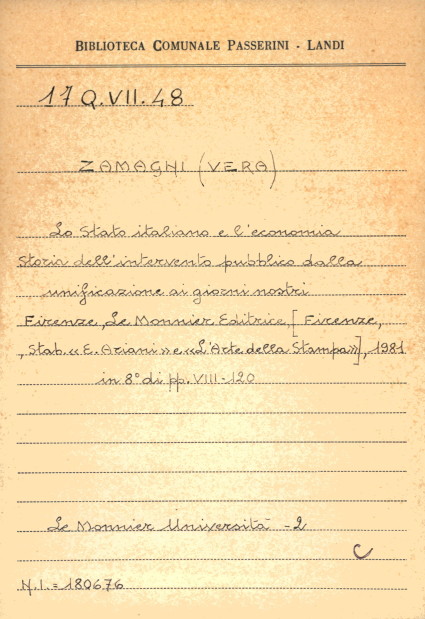 BIBLIOTECA COMUNALE PASSERINI - LANDI
17 Q.VII.48
ZAMAGNI (VERA)
Lo Stato italiano e l'economia
Storia dell'intervento pubblico dalla
unificazione ai giorni nostri
Firenze, Le Monnier Editrice, [Firenze,
, Stab. «E. Ariani» e «L'Arte della Stampa»], 1981
in 8° di pp. VIII-120
Le Monnier Università - 2
C
N.I. = 180676